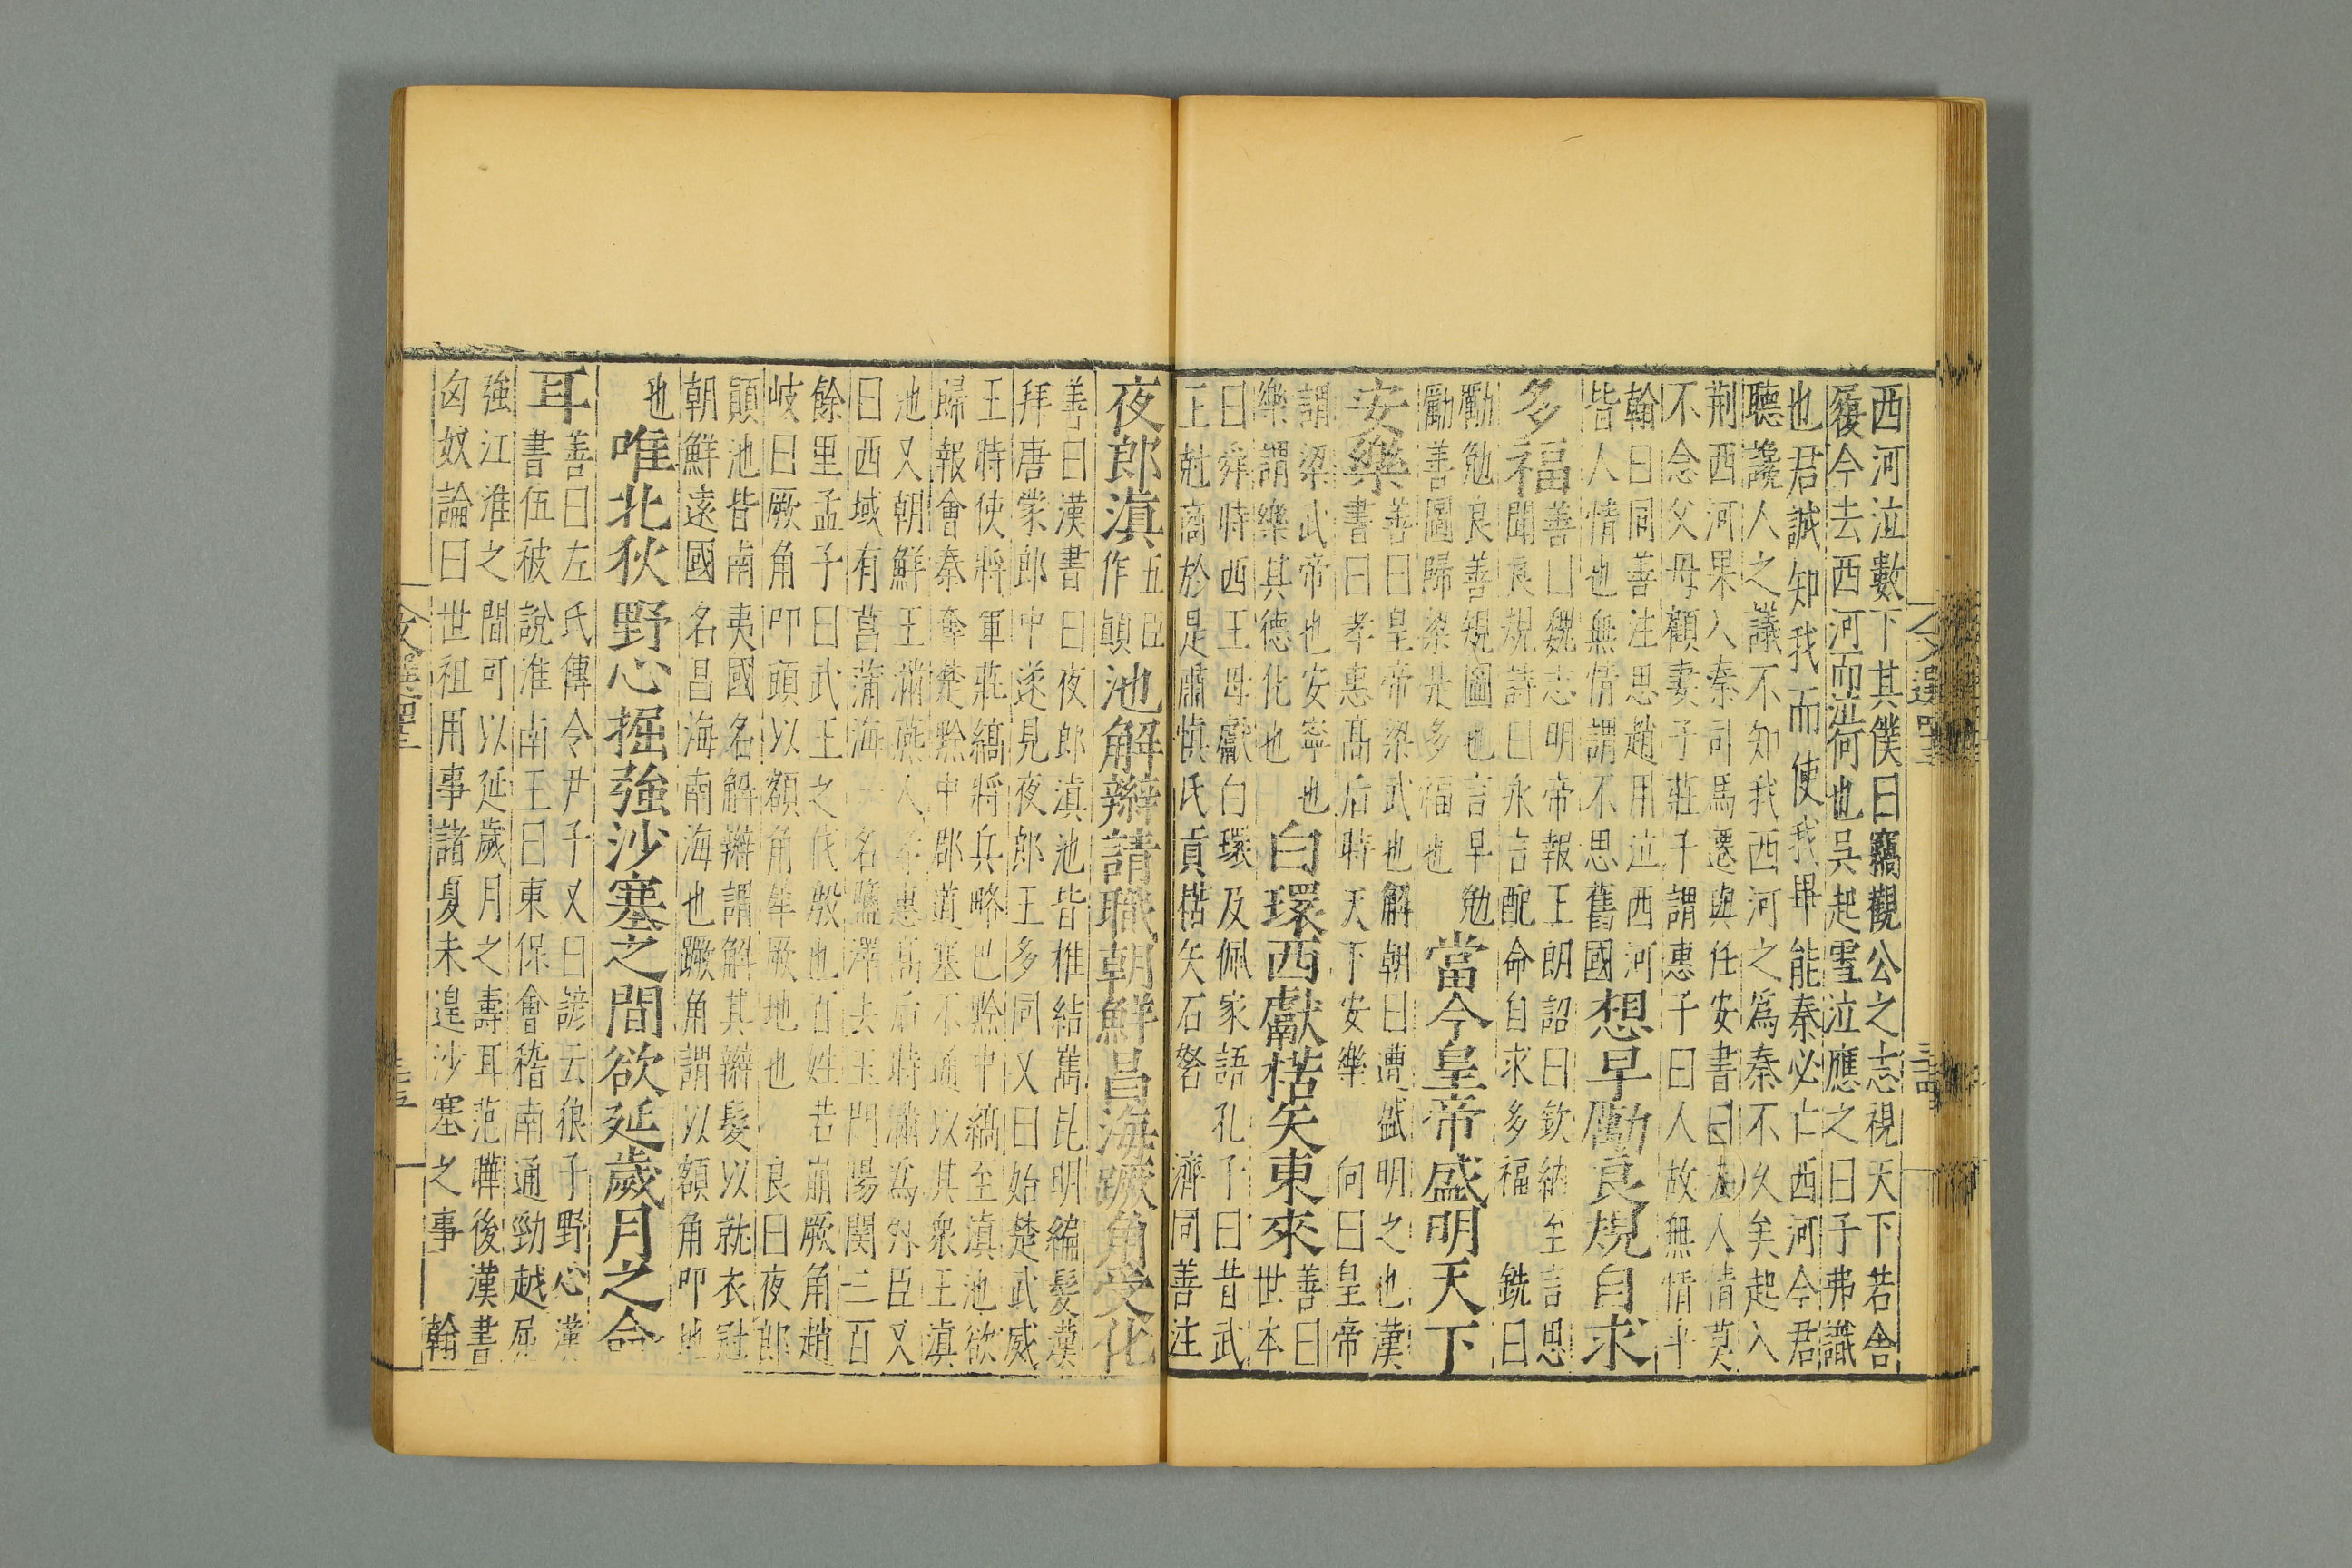 西河泣數下其僕曰竊觀公之志視天下若舍
履今去西河而泣何也吳起雪泣應之曰子弗識
也君誠知我而使我畢能秦必亡西河今君
聽讒人之議不知我西河之爲秦不久矣起入
荆西河果入秦司馬遷與任安書曰夫人情莫
不念父母顧妻子莊子謂惠子曰人故無情乎
翰曰同善注思趙用泣西河
皆人情也無情謂不思舊國
想早勵良規自求
多福
善曰魏志明帝報王朗詔曰欽納至言思
聞良規詩曰永言配命自求多福 銑曰
勵勉良善規圖也言早勉
勵善圖歸梁是多福也
當今皇帝盛明天下
安樂
善曰皇帝梁武也解朝曰遭盛明之也漢
書曰孝惠髙后時天下安樂 向曰皇帝
謂梁武帝也安寧也
樂謂樂其德化也
白環西獻楛矢東來
善曰
世本
曰舜時西王母獻白環及佩家語孔子曰昔武
王尅商於是肅慎氏貢楛矢石砮 濟同善注
夜郎滇
五臣
作顚
池解辮請職朝鮮昌海蹶角受化
善曰漢書曰夜郎滇池皆椎結嶲昆明編髮漢
拜唐蒙郎中遂見夜郎王多同又曰始楚武威
王時使將軍莊蹻將兵略巴黔中蹻至滇池欲
歸報會秦奪楚黔中郡道塞不通以其衆王滇
池又朝鮮王滿燕人孝惠髙后時滿爲外臣又
曰西域有菖蒲海一名鹽澤去玉門陽関三百
餘里孟子曰武王之伐殷也百姓若崩厥角趙
岐曰厥角叩頭以額角犀厥地也 良曰夜郎
顚池皆南夷國名解辮謂解其辮髮以就衣冠
朝鮮遠國名昌海南海也蹶角謂以額角叩地
也
唯北狄野心掘強沙塞之間欲延歲月之命
耳
善曰左氏傳令尹子又曰諺云狼子野心漢
書伍被說淮南王曰東保會稽南通勁越屈
強江淮之間可以延歲月之壽耳范曄後漢書
匈奴論曰世祖用事諸夏未遑沙塞之事 翰